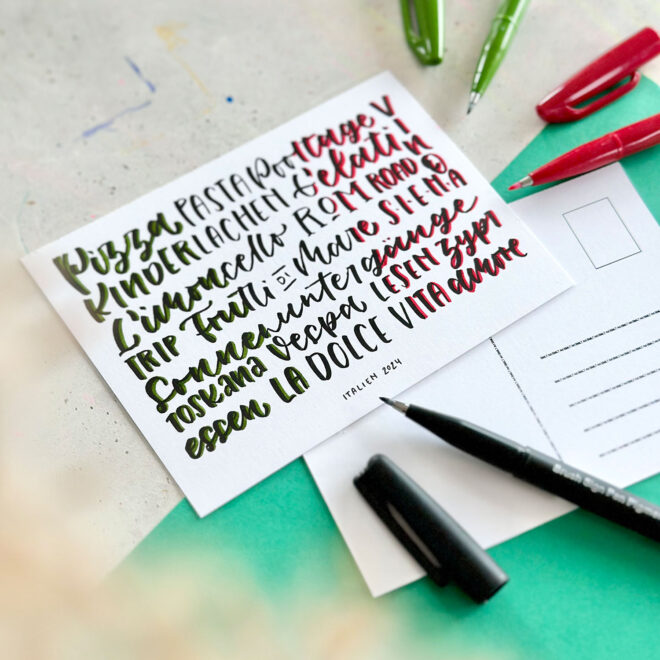 Pizza PASTA Pooltage VINO
KINDERLACHEN Gelati
Limoncello ROM ROAD
TRIP Frutti DI Mare S·I·E·N·A
Sonnenuntergänge
TOSKANA Vespa LESEN Zypr
essen LA DOLCE VITA amore
ITALIEN 2024
Brush Sign Pen Pigme